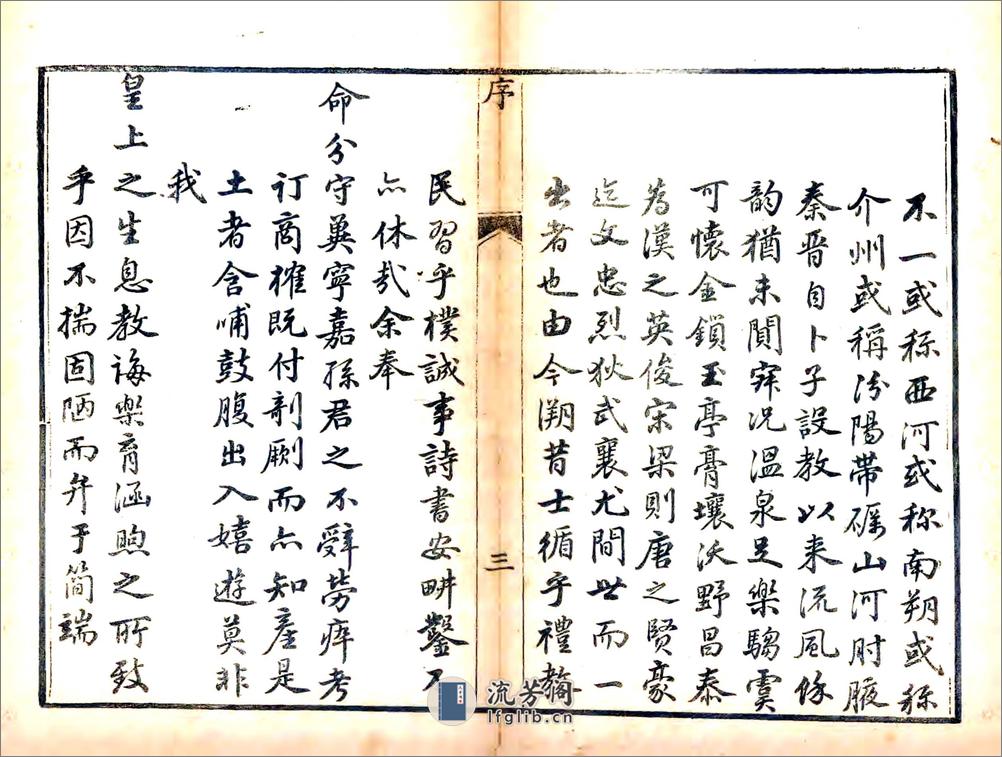 不一或称西河或称南朔或称
介州或稱汾陽帶礪山河肘腋
秦晉自卜子設教以来流風餘
韵猶未閴寂况溫泉足樂騶虞
可懷金鎖玉亭膏壤沃野昌泰
為漢之英俊宋梁則唐之賢豪
迄文忠烈狄武襄尤間世而一
出者也由今溯昔士循乎禮教
序
三
民習乎樸誠事詩書安畊鑿不
亦休哉余奉
命分守冀寧嘉孫君之不辭勞瘁考
訂商榷既付剞劂而亦知產是
土者含哺鼓腹出入嬉遊莫非
我
皇上之生息教誨樂育涵煦之所致
乎因不揣固陋而弁于簡端
流芳阁
lfglib.cn